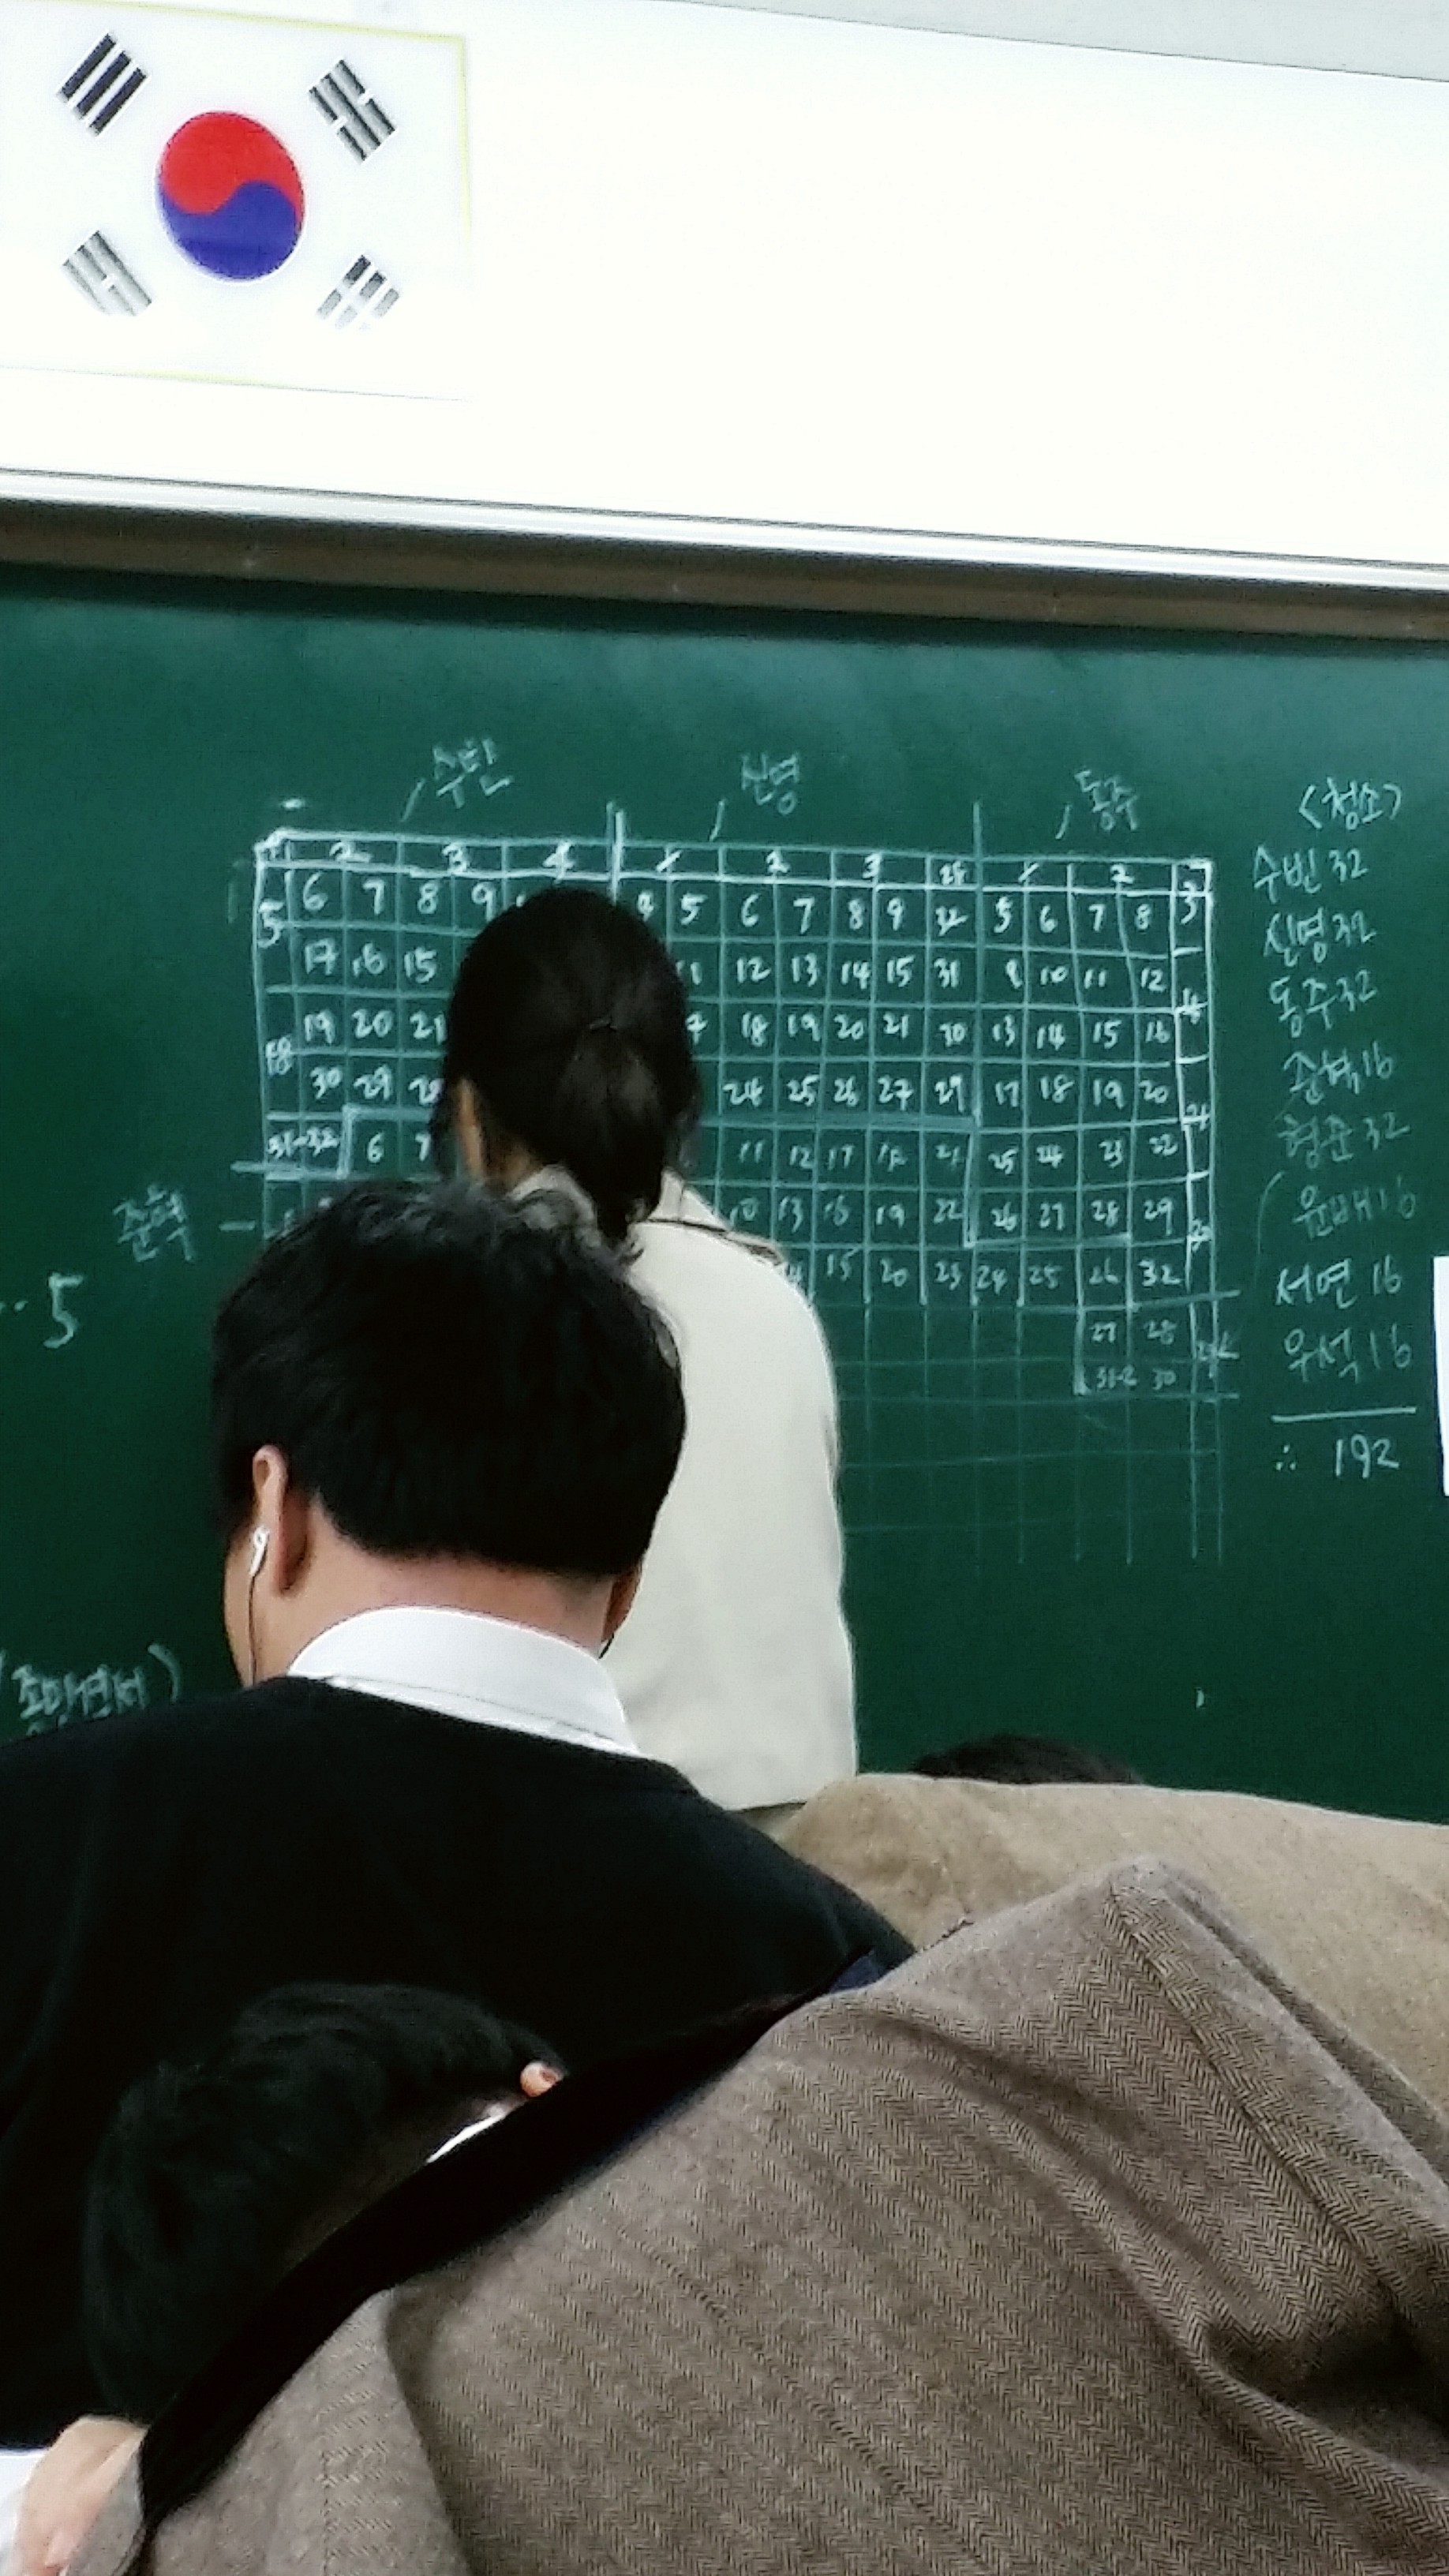 수빈 신영 동주
1 2 3 4 1 2 3 28 1 2 3
5 6 7 8 9 4 5 6 7 8 9 32 5 6 7 8 3
17 16 15 11 12 13 14 15 31 9 10 11 12
19 20 21 18 19 20 21 30 13 14 15 16
18 30 29 28 24 25 26 27 29 17 18 19 20
31-32 6 7 11 12 17 18 21 25 24 23 22
준혁 10 13 16 19 22 26 27 28 29
15 20 23 24 25 26 32
27 28
31-2 30
5
<청소>
수빈 32
신영 32
동주 32
준혁 16
형준 32
윤배 16
서연 16
우석 16
∴ 192